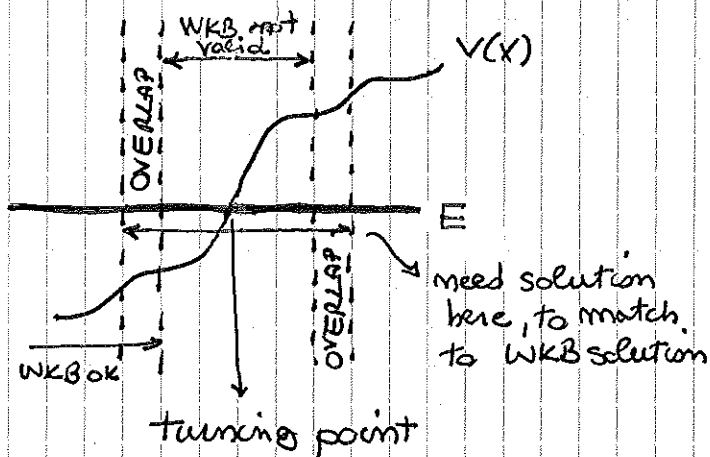 WKB not
valid
V(x)
OVERLAP
E
OVERLAP
need solution
here, to match
to WKB solution
WKB OK
turning point